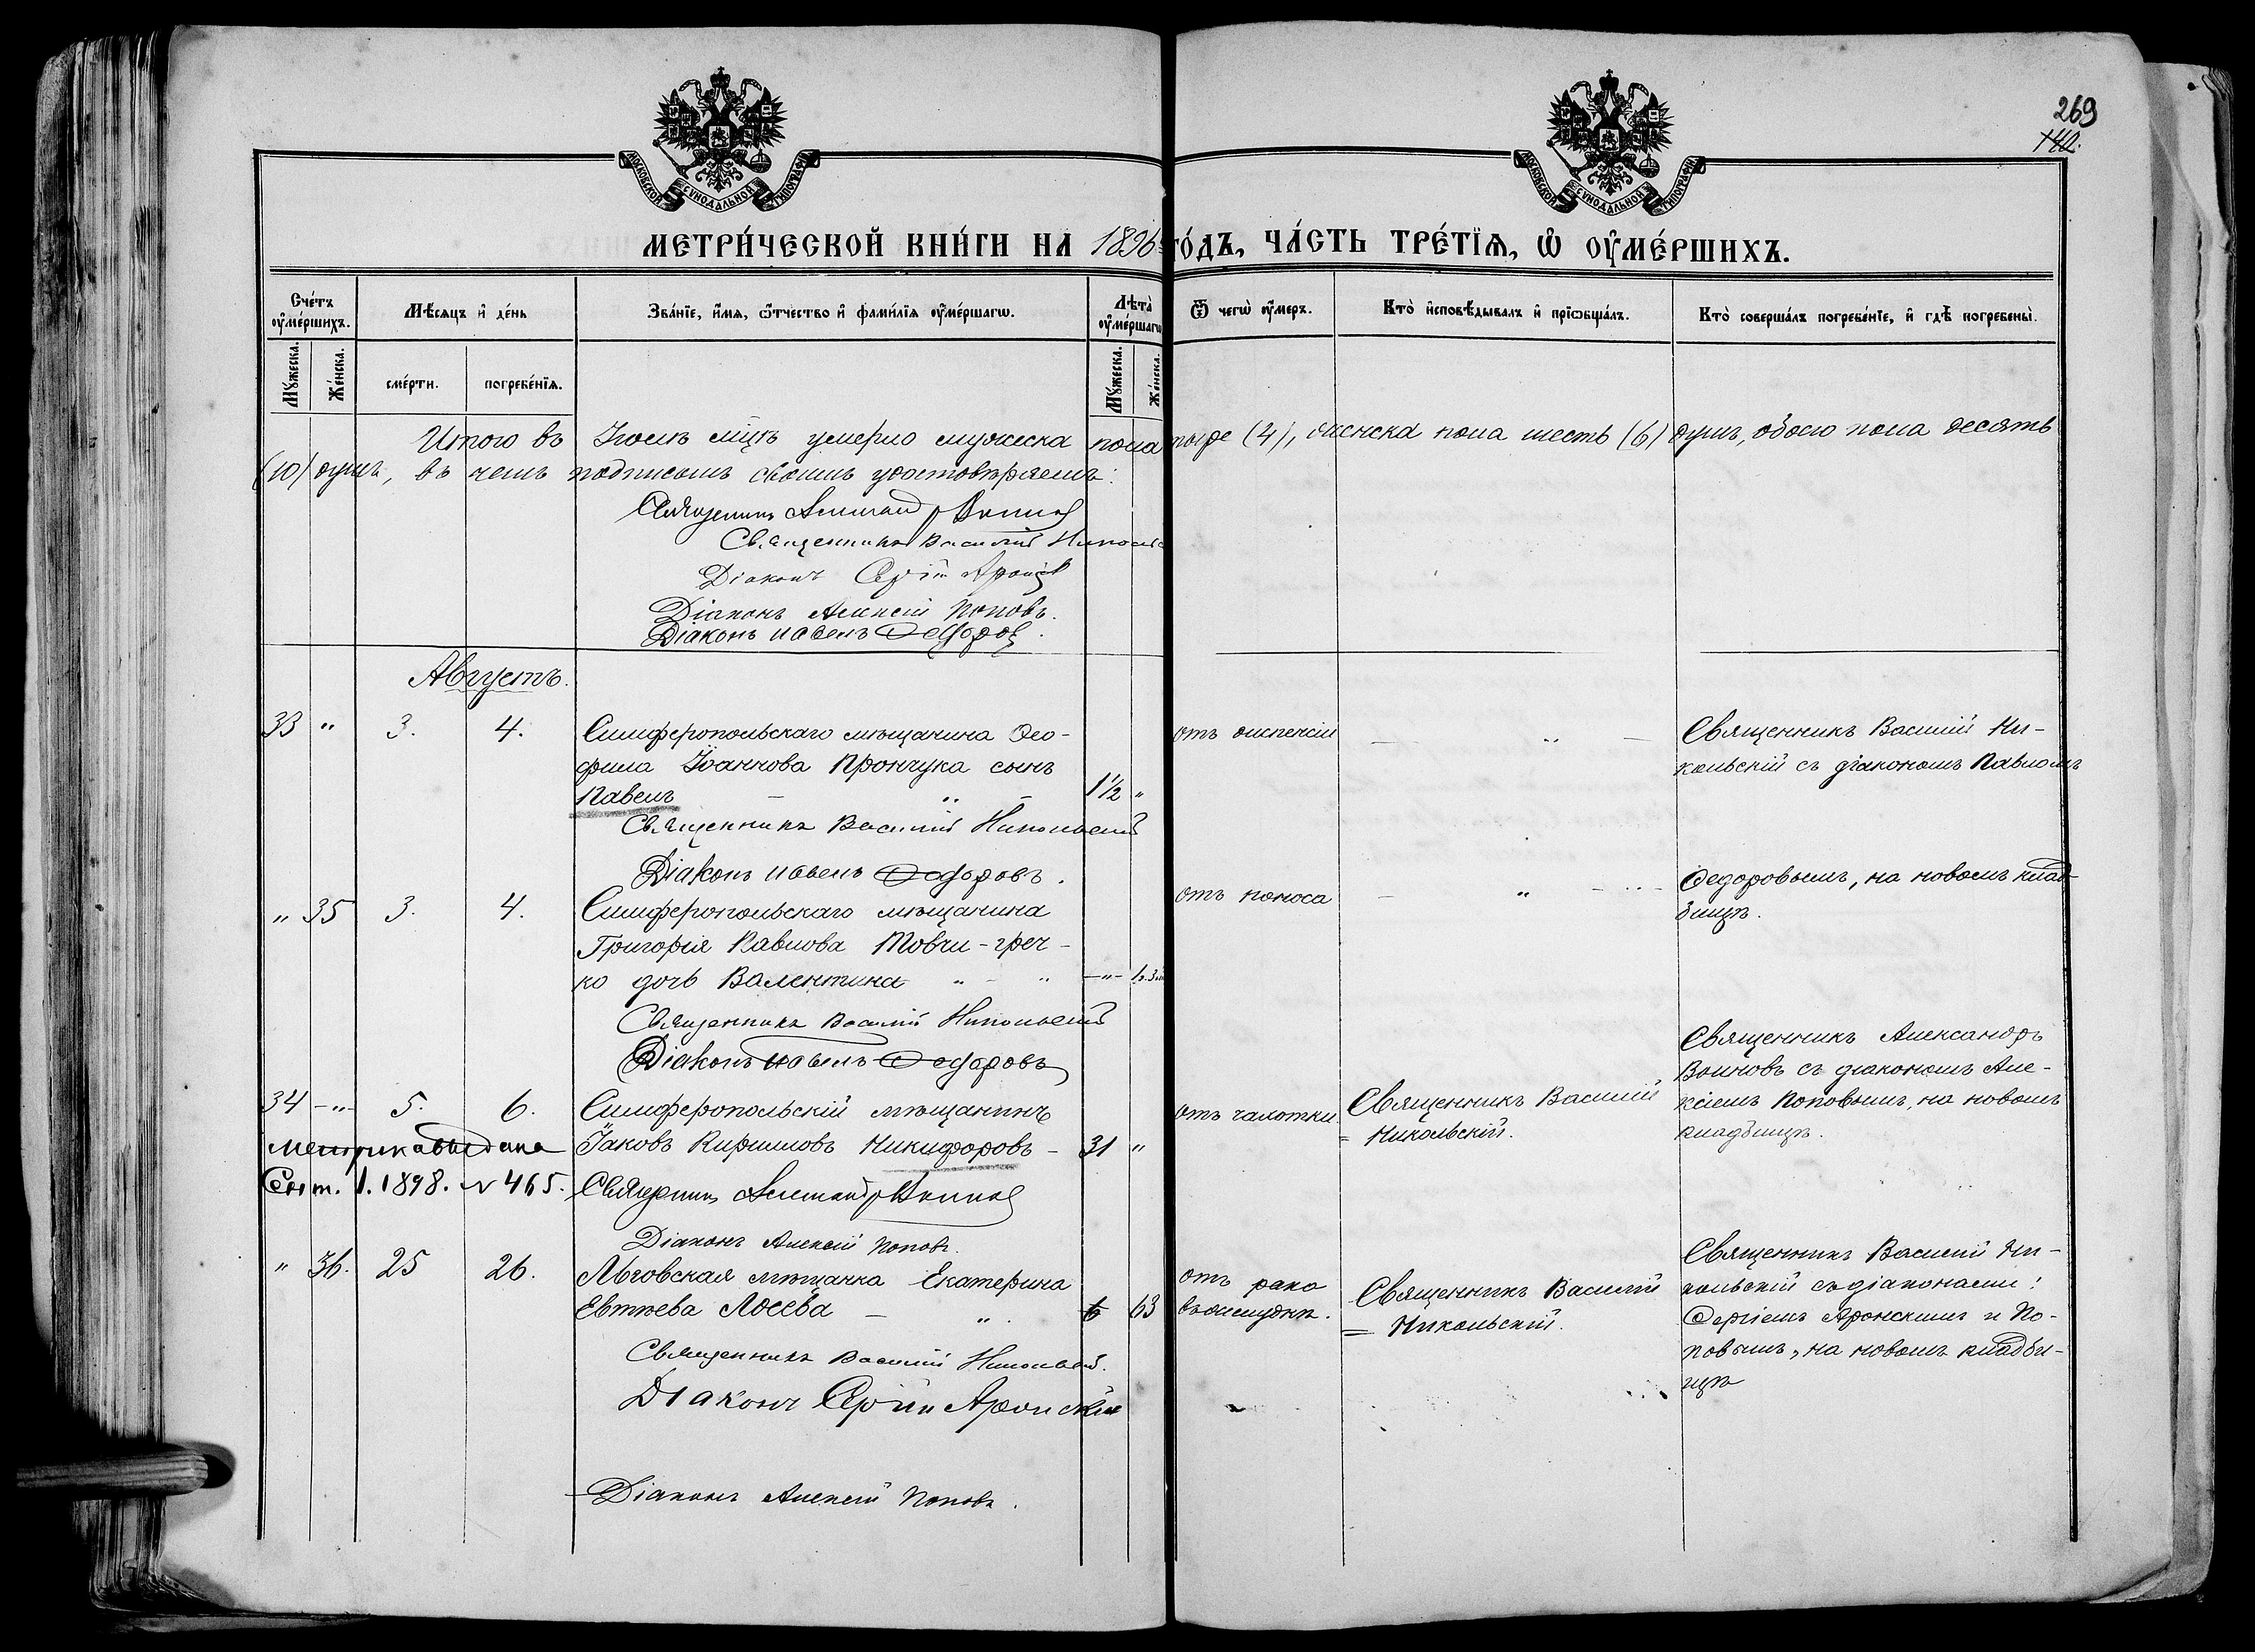 269
140.
МОСКОВСКОЙ СѴНОДАЛЬНОЙ ТИПОГРАФІИ
МОСКОВСКОЙ СѴНОДАЛЬНОЙ ТИПОГРАФІИ
МЕТРИ́ЧЕСКОЙ КНИ́ГИ НА 1896 ГО́ДЪ, ЧА́СТЬ ТРЕ́ТІѦ, Ѡ҆ ОУ҆МЕ́РШИХЪ.
Сче́тъ оу҆ме́ршихъ.
Мѣ́сяцъ и҆ де́нь
Зва́нїе, и҆́мѧ, ѻ҆́тчество и҆ фами́лїѧ оу҆ме́ршагѡ.
Лѣта̀ оу҆ме́ршагѡ
Ѿ чегѡ̀ оу҆́меръ.
Кто̀ и҆сповѣ́дывалъ и҆ прїѡбща́лъ.
Кто̀ соверша́лъ погребе́нїе, и҆ гдѣ̀ погребены̀.
Мꙋ́жеска.
Же́нска.
сме́рти.
погребе́нїѧ.
Мꙋ́жеска.
Же́нска.
Итого въ Іюлѣ мцѣ умерло мужеска пола четыре (4), женска пола шесть (6) душъ, обоего пола десять
(10) душъ, въ чемъ подписомъ своимъ удостовѣряемъ:
Священникъ Александръ Воиновъ
Священникъ Василій Никольс
Діаконъ Сергій Аронскій
Діаконъ Алексій Поповъ.
Діаконъ Павелъ Ѳедоровъ.
Августъ.
33 " 3. 4. Симферопольскаго мѣщанина Ѳео-
фила Іоаннова Прончука сынъ
Павелъ — " — 1½ "
отъ диспепсіи — " —
Священникъ Василій Ни-
кольскій съ діакономъ Павломъ
Ѳедоровымъ, на новомъ клад-
бищѣ.
Священникъ Василій Никольскій
Діаконъ Павелъ Ѳедоровъ.
" 35 3. 4. Симферопольскаго мѣщанина
Григорія Павлова Товчи-греч-
ко дочь Валентина " - " -"-
отъ поноса — " —
Священникъ Василій Никольскій
Діаконъ Павелъ Ѳедоровъ
34 -"- 5. 6. Симферопольскій мѣщанинъ
Іаковъ Кирилловъ Никифоровъ — 31 "
отъ чахотки.
Священникъ Василій
= Никольскій.
Священникъ Александръ
Воиновъ съ діакономъ Але-
ксіемъ Поповымъ, на новомъ
кладбищѣ.
Метрика выдана
Сент. 1. 1898. № 465.
Священникъ Александръ Воиновъ
Діаконъ Алексій Поповъ.
" 36. 25 26. Льговская мѣщанка Екатерина
Евтѣева Лосева — " 63
отъ рака
въ желудкѣ.
Священникъ Василій
= Никольскій.
Священникъ Василій Ни-
кольскій съ діаконами:
Сергіемъ Аронскимъ и По-
повымъ, на новомъ кладби-
щѣ
Священникъ Василій Никольскій.
Діаконъ Сергій Аронскій
Діаконъ Алексій Поповъ.